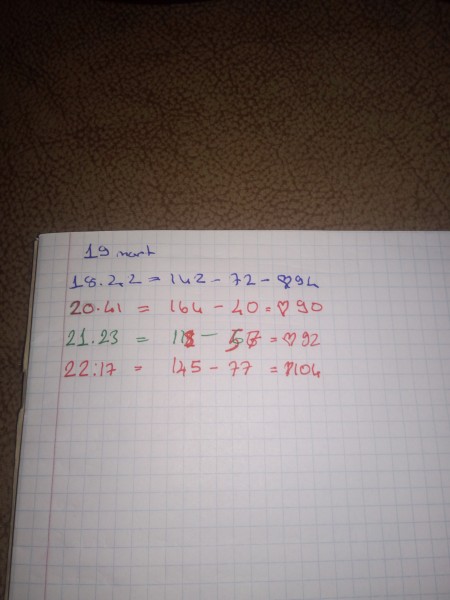 19 mart
18.22 = 142 - 72 - ♡94
20.41 = 164 - 40 = ♡90
21.23 = 118 - 57 = ♡92
22:17 = 145 - 77 = ♡104